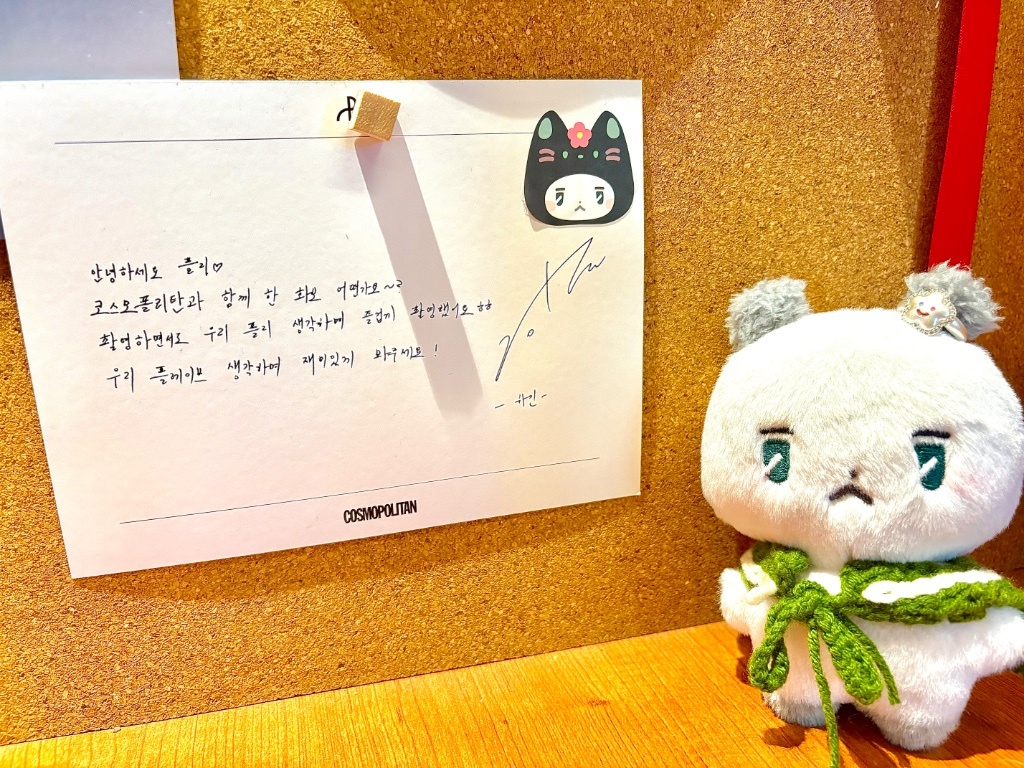 안녕하세요 플리♡
코스모폴리탄과 함께 한 화보 어떤가요~?
촬영하면서도 우리 플리 생각하며 즐겁게 촬영했어요 ㅎㅎ
우리 플레이브 생각하며 재미있게 봐주세요!
- 하민 -
COSMOPOLITAN